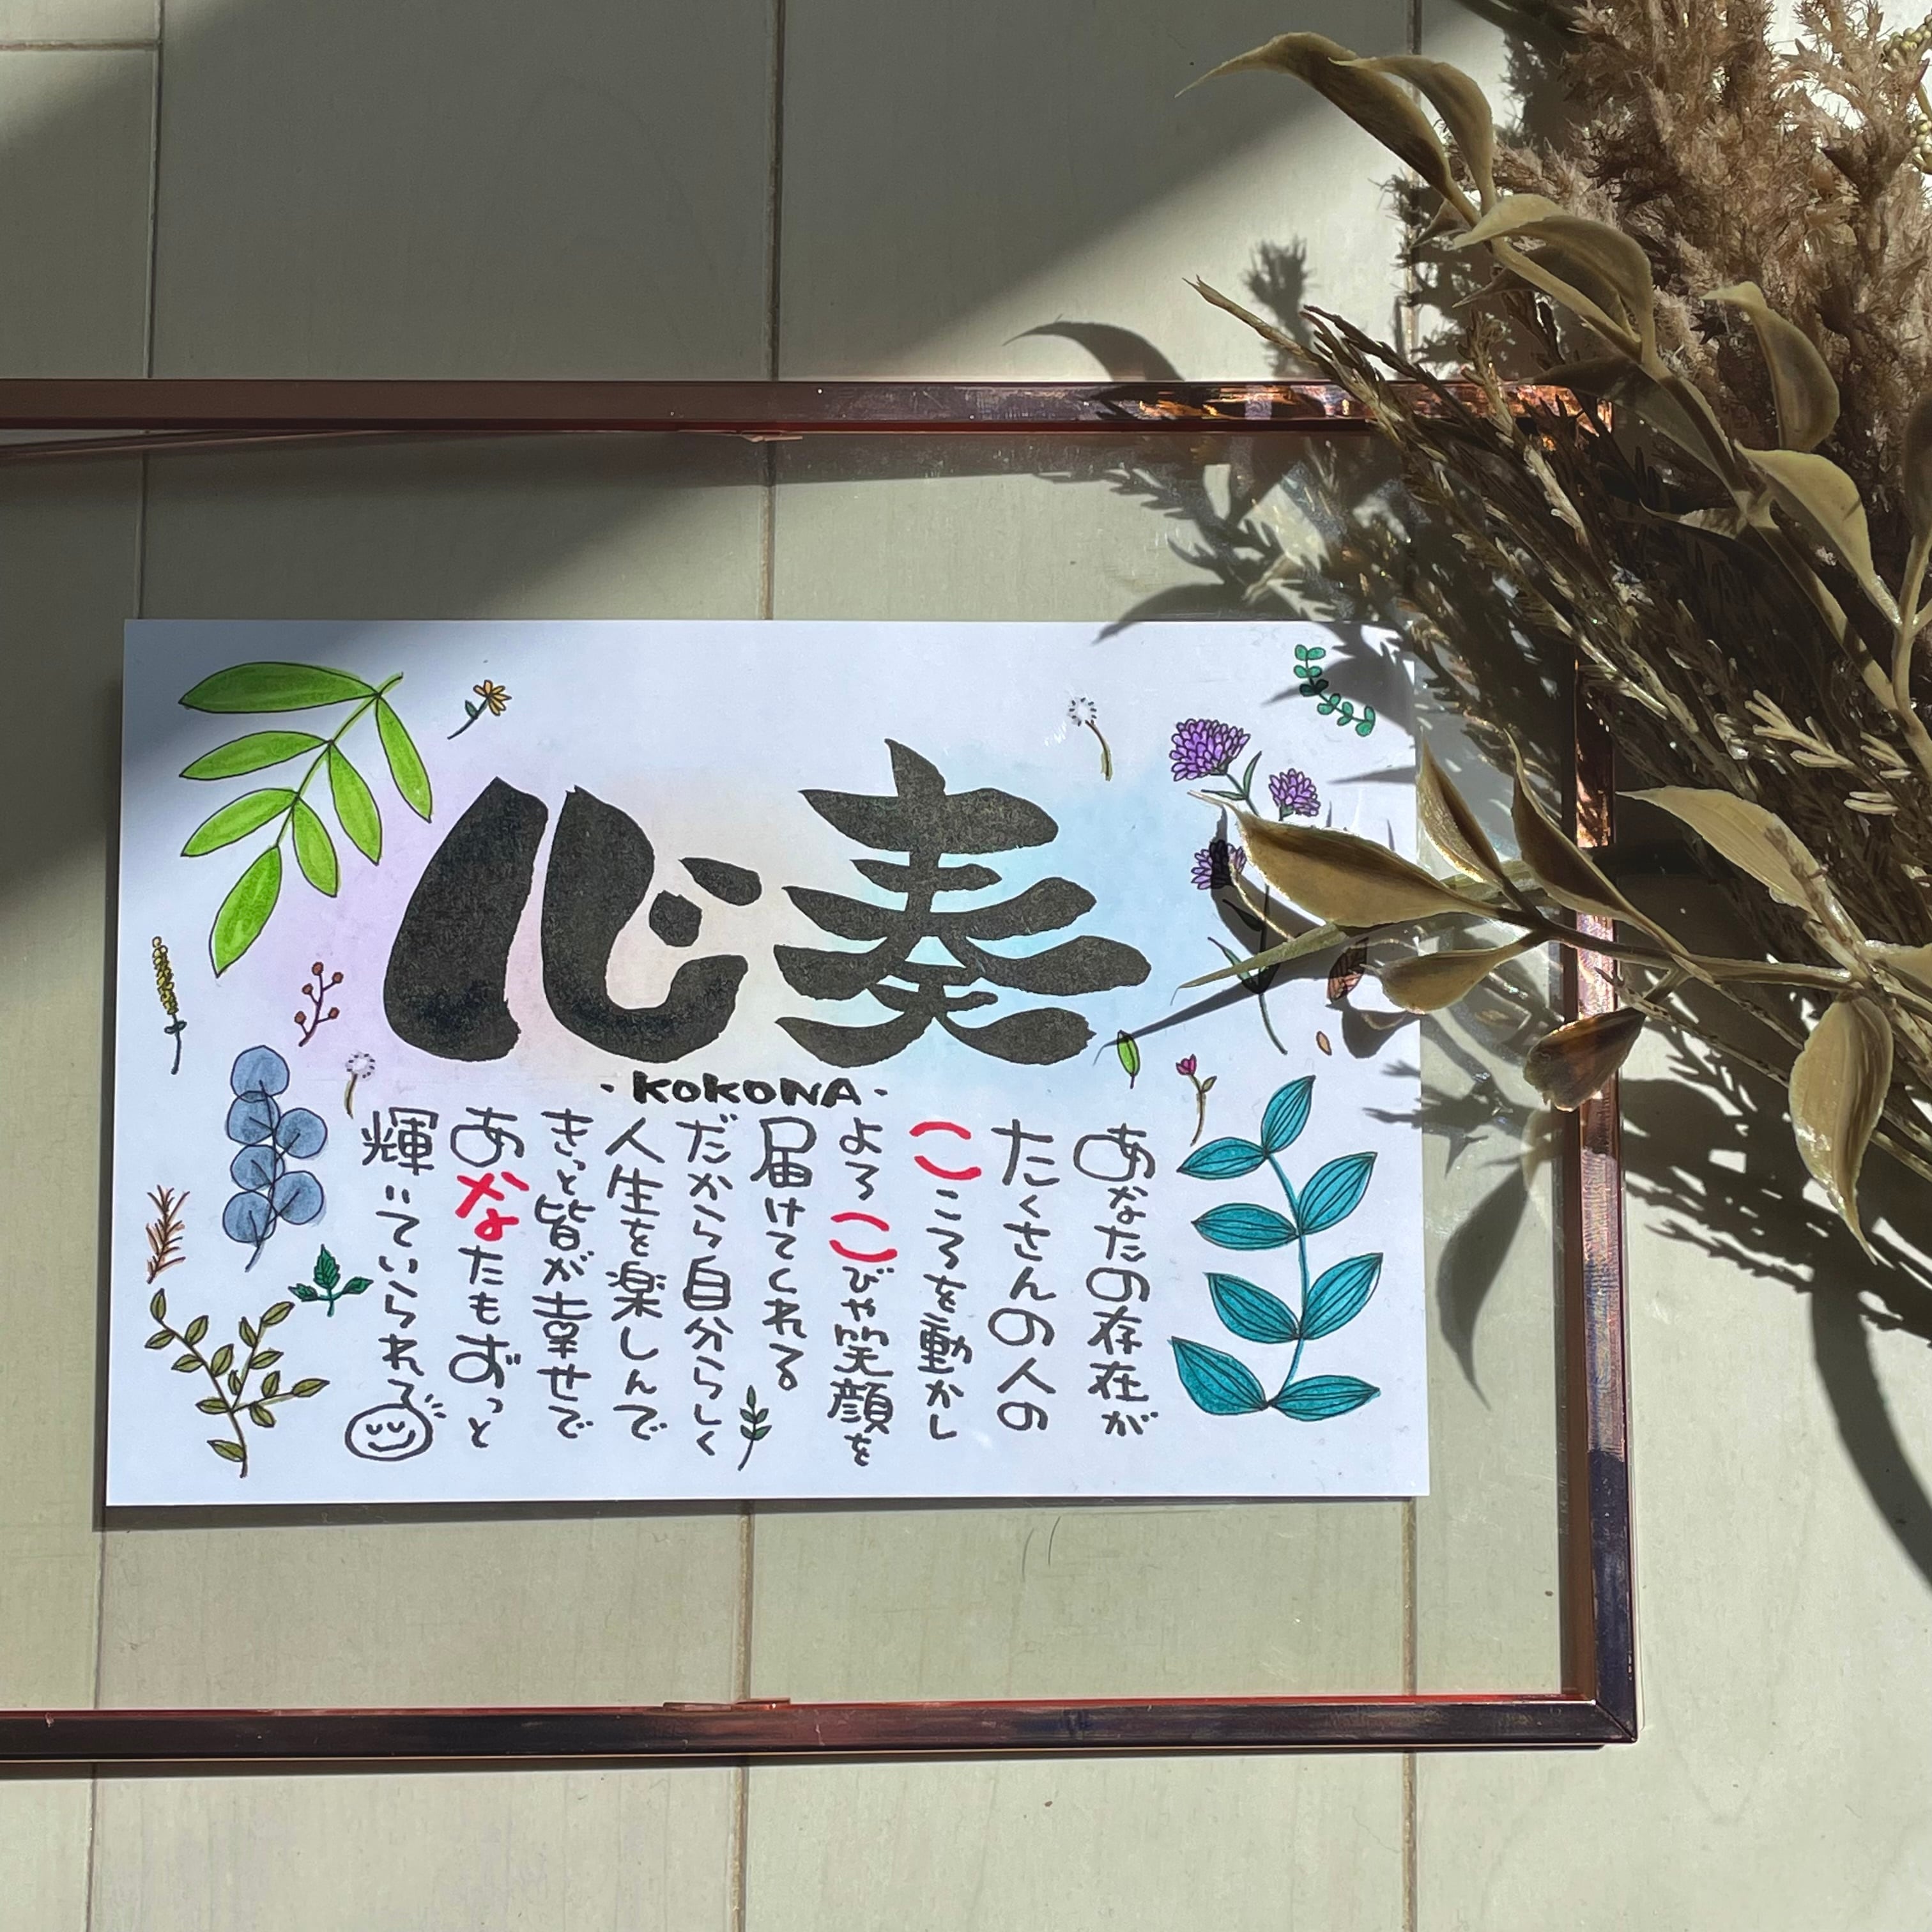 心奏
-KOKONA-
あなたの存在が
たくさんの人の
こころを動かし
よろこびや笑顔を
届けてくれる
だから自分らしく
人生を楽しんで
きっと皆が幸せで
あなたもずっと
輝いていられる